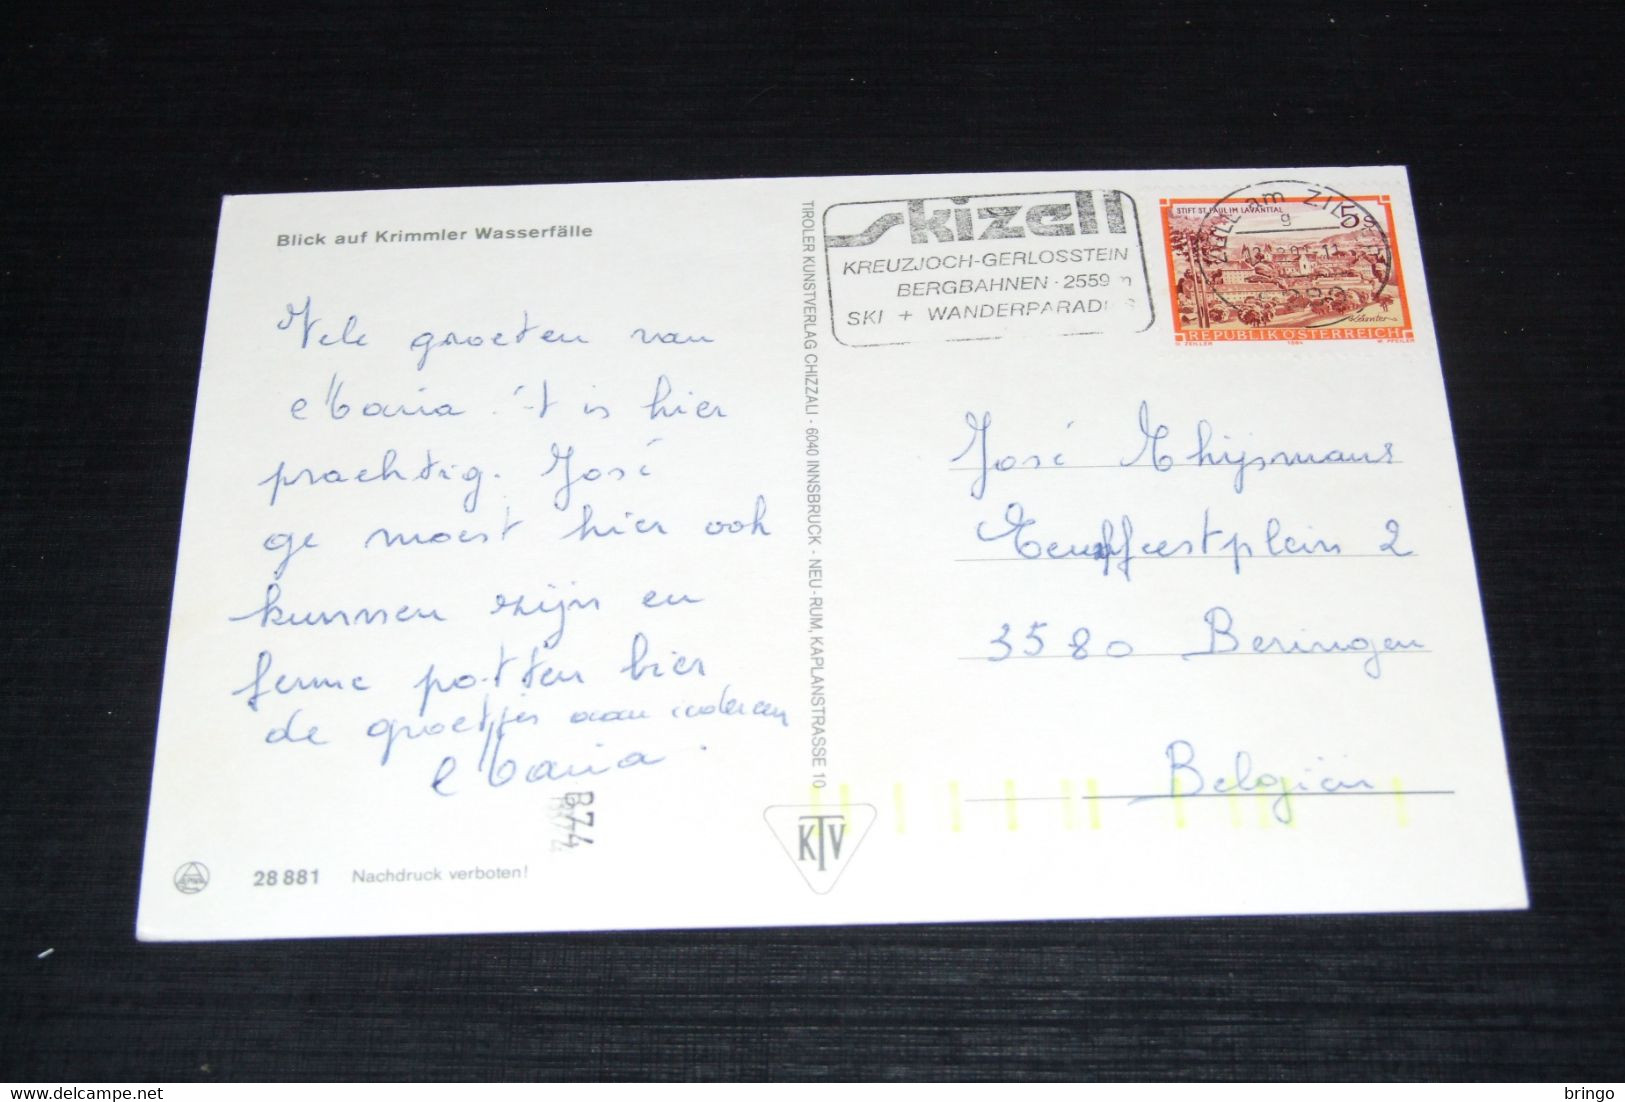 Blick auf Krimmler Wasserfälle
Vele groeten van
Maria 't is hier
prachtig. José
ge moest hier ook
kunnen zijn en
ferme potten bier
de groetjes van iedereen
Maria.
B74
28 881 Nachdruck verboten!
TIROLER KUNSTVERLAG CHIZZALI · 6040 INNSBRUCK - NEU-RUM, KAPLANSTRASSE 10
KTV
skizell
KREUZJOCH-GERLOSSTEIN
BERGBAHNEN · 2559 m
SKI + WANDERPARADIES
ZELL am ZILLER
STIFT ST. PAUL IM LAVANTTAL
5 S
Kärnten
REPUBLIK ÖSTERREICH
O. ZEILLER 1984 W. PFEILER
José Thijsmans
2
3580 Beringen
Belgiën
bringo